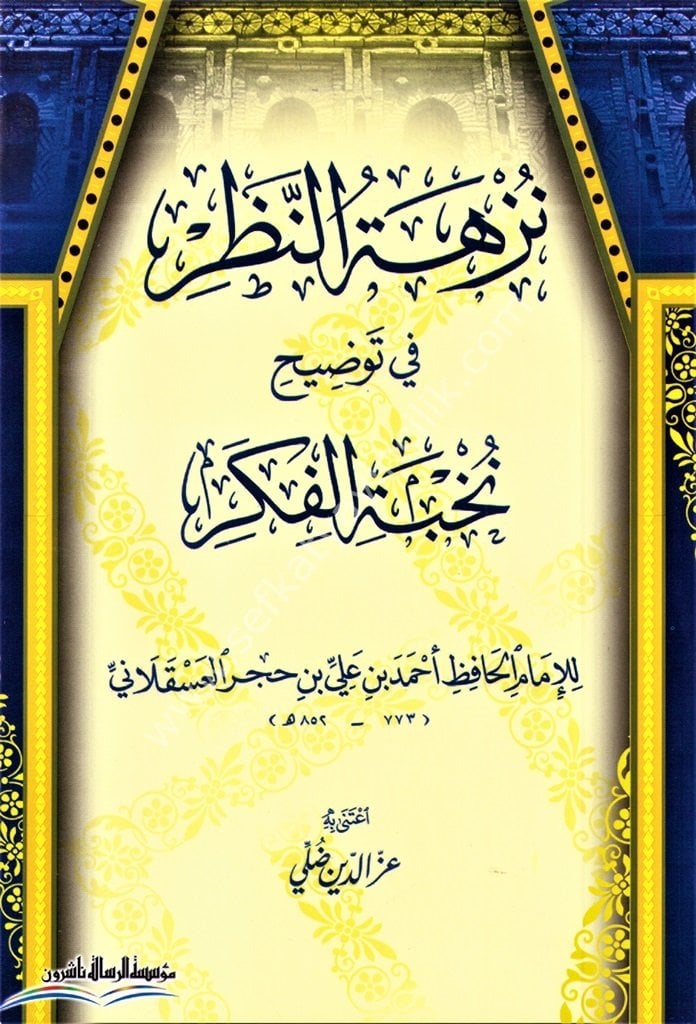 نُزْهَةُ النَّظَرِ
في تَوْضِيحِ
نُخْبَةِ الفِكَرِ
لِلإِمَامِ الحَافِظِ أَحْمَدَ بنِ عَلِيِّ بنِ حَجَر العَسْقَلَانِيِّ
(٧٧٣ – ٨٥٢هـ)
اعْتَنَى بِهِ
عزّ الدّين ضُلِّي
مؤسسة الرسالة ناشرون